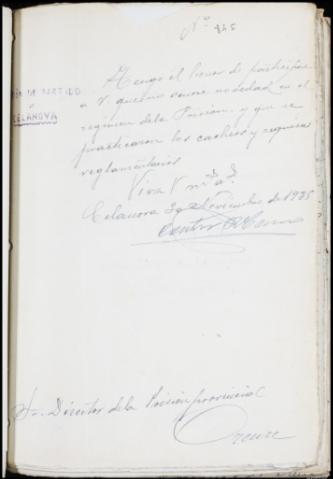 Nº 845
PRISION DE PARTIDO
CELANOVA
Tengo el honor de participar
a V. que no ocurre novedad en el
regimen de la Prision, y que se
practicaron los cacheos y requisas
reglamentarias
Viva V. m. a.
Celanova Noviembre de 1935
Sr. Director de la Prision provincial
Orense